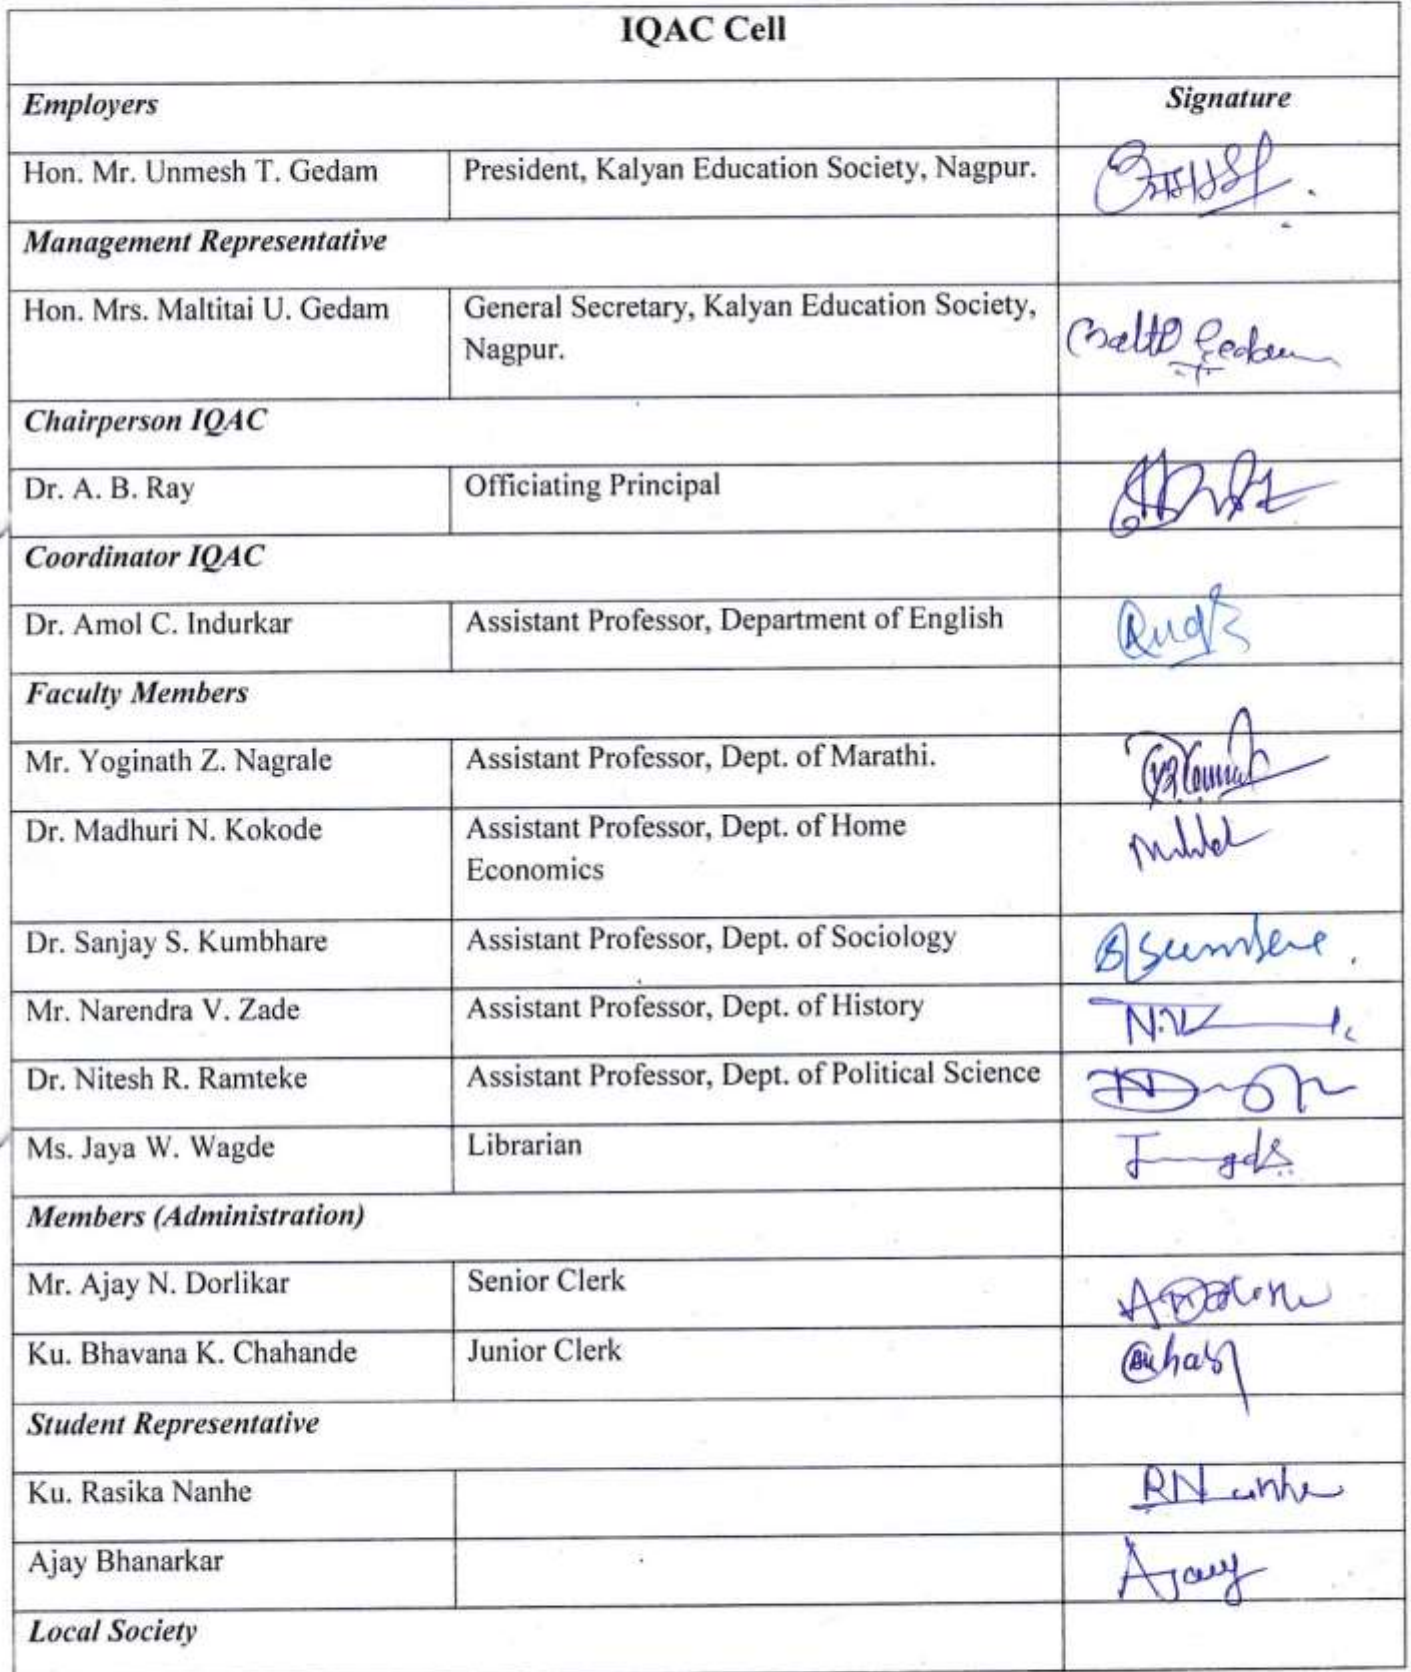 IQAC Cell
Employers Signature
Hon. Mr. Unmesh T. Gedam President, Kalyan Education Society, Nagpur.
Management Representative
Hon. Mrs. Maltitai U. Gedam General Secretary, Kalyan Education Society,
Nagpur.
Chairperson IQAC
Dr. A. B. Ray Officiating Principal
Coordinator IQAC
Dr. Amol C. Indurkar Assistant Professor, Department of English
Faculty Members
Mr. Yoginath Z. Nagrale Assistant Professor, Dept. of Marathi.
Dr. Madhuri N. Kokode Assistant Professor, Dept. of Home
Economics
Dr. Sanjay S. Kumbhare Assistant Professor, Dept. of Sociology
Mr. Narendra V. Zade Assistant Professor, Dept. of History
Dr. Nitesh R. Ramteke Assistant Professor, Dept. of Political Science
Ms. Jaya W. Wagde Librarian
Members (Administration)
Mr. Ajay N. Dorlikar Senior Clerk
Ku. Bhavana K. Chahande Junior Clerk
Student Representative
Ku. Rasika Nanhe RNanhe
Ajay Bhanarkar Ajay
Local Society